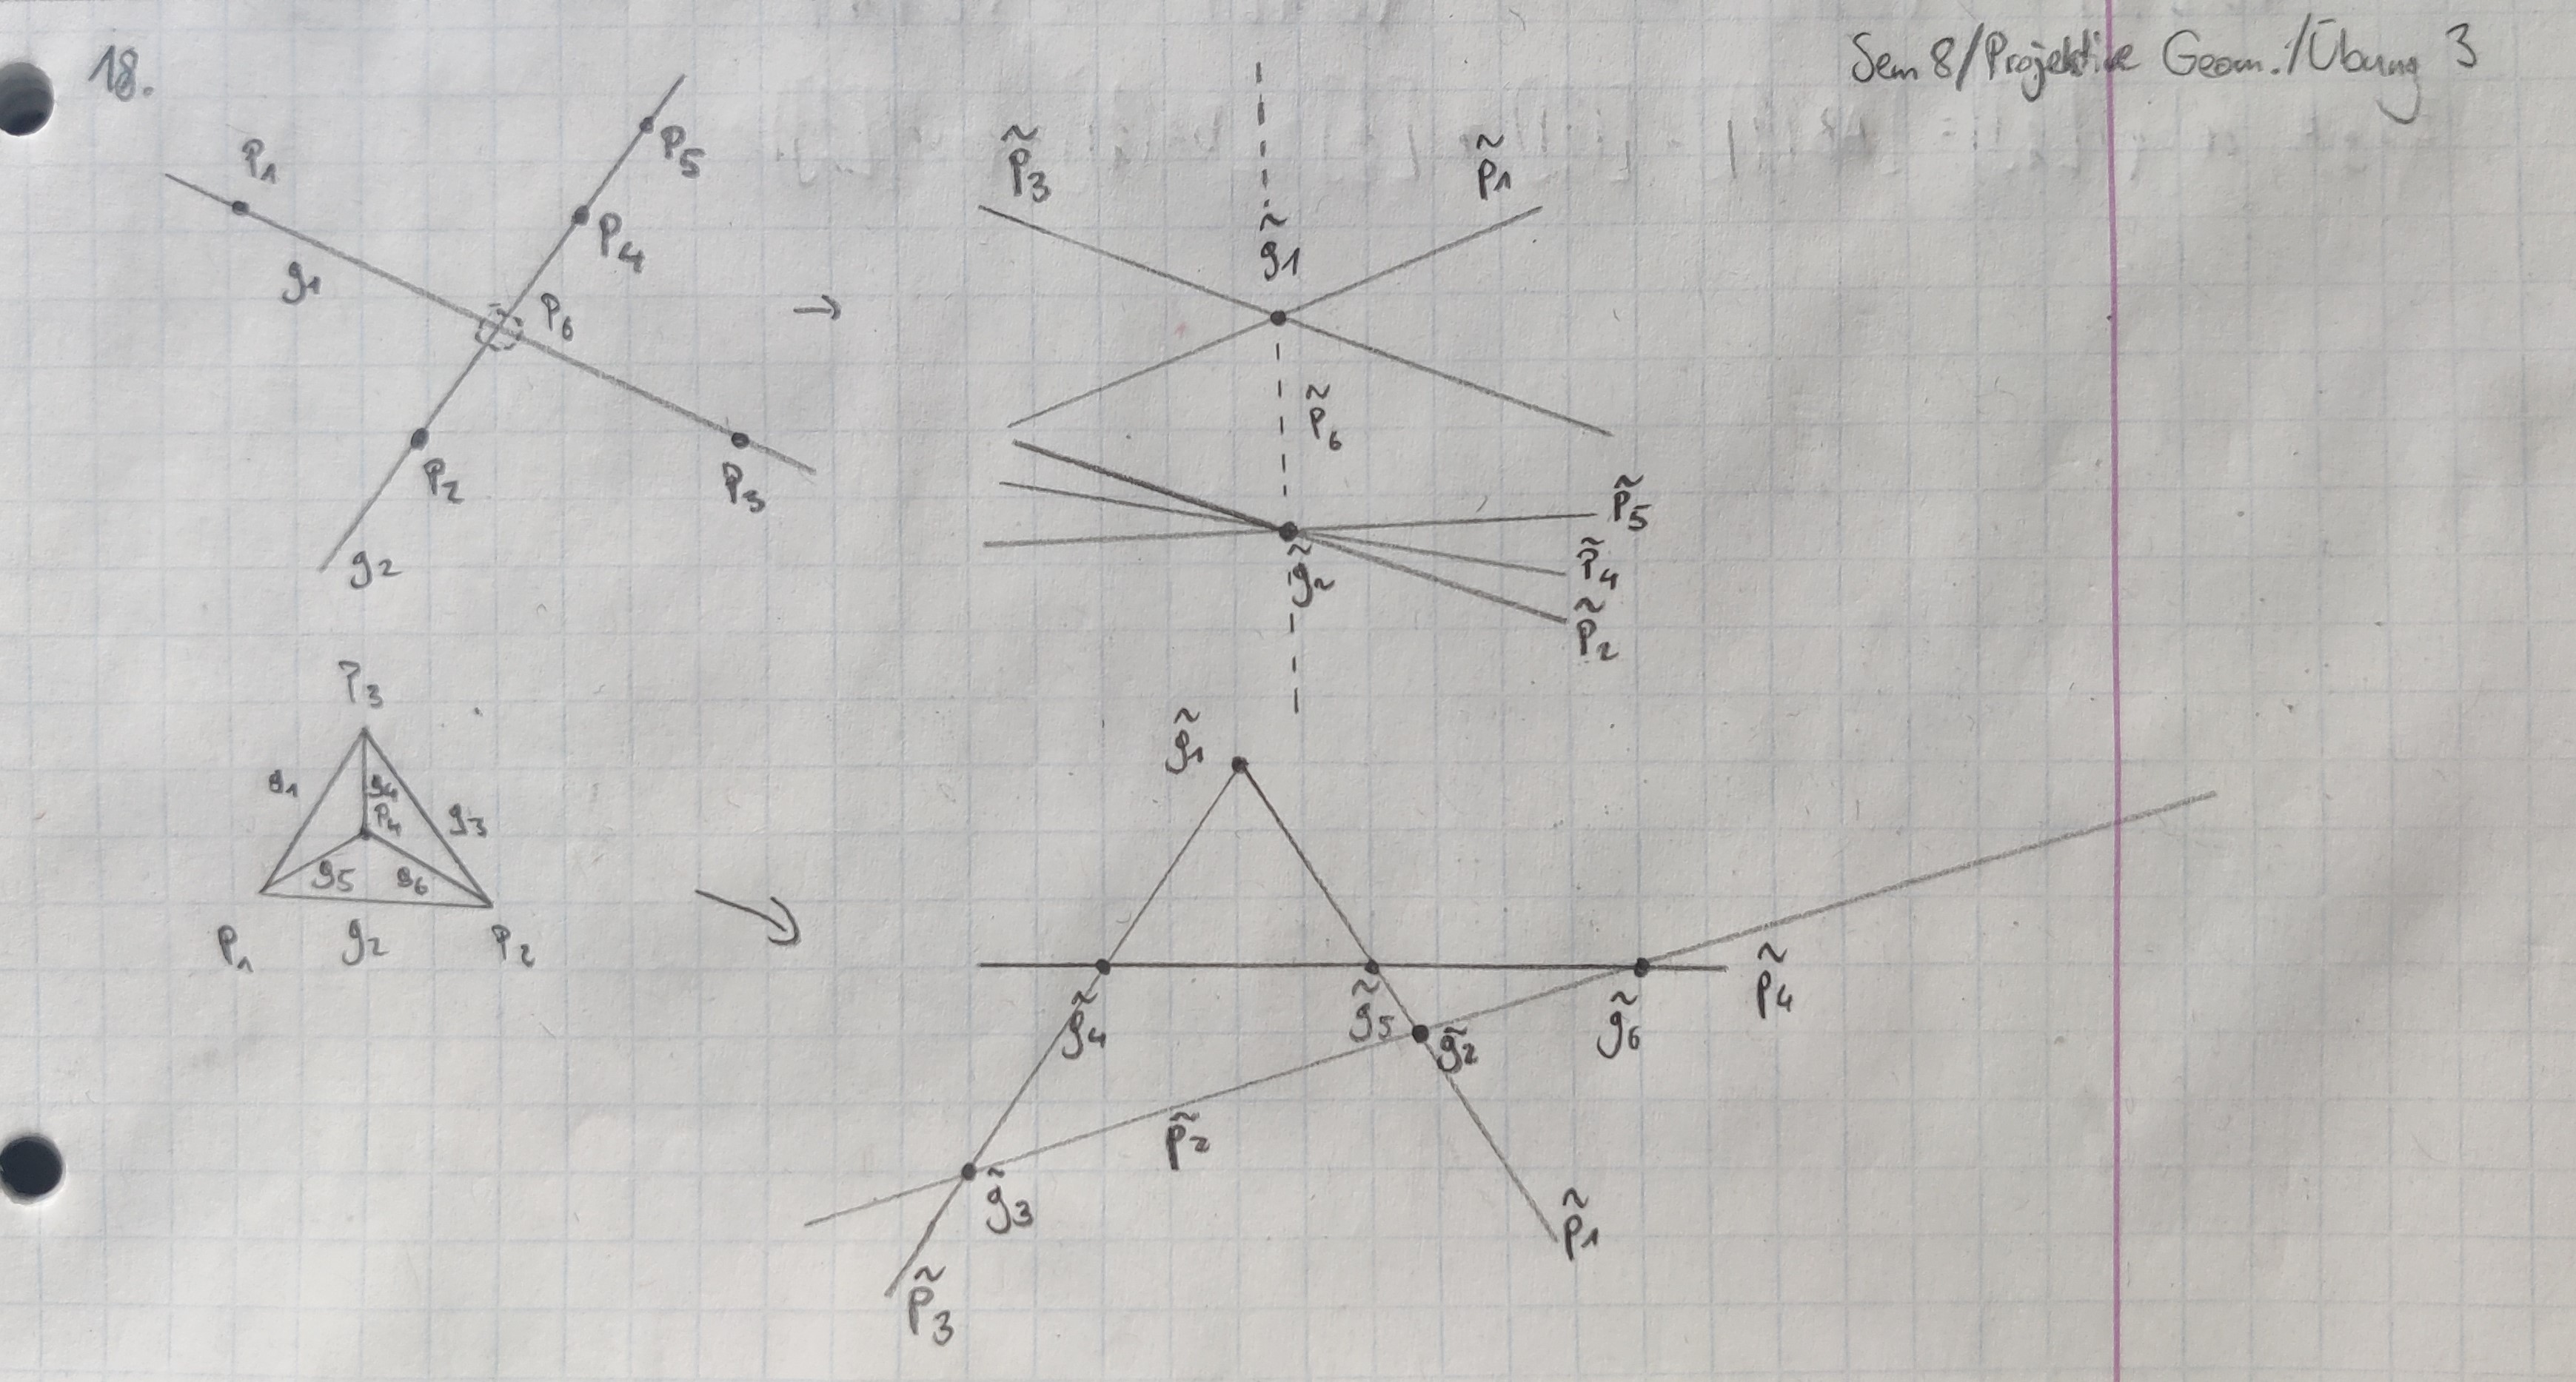 18.
Sem 8/Projektive Geom./Übung 3
P₁
P₅
P₄
g₁
P₆
P₂
P₃
g₂
→
P̃₃
P̃₁
g̃₁
P̃₆
P̃₅
P̃₄
g̃₂
P̃₂
P₃
g₁
g₄
P₄
g₃
g₅
g₆
P₁
g₂
P₂
g̃₁
P̃₄
g̃₄
g̃₅
g̃₂
g̃₆
P̃₂
g̃₃
P̃₁
P̃₃